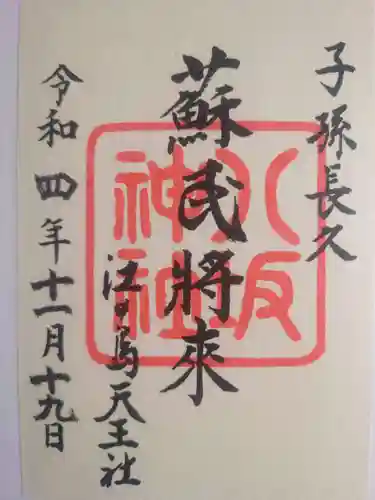 子孫長久
蘇民將来
江口烏天王社
令和四年十一月十九日
八坂神社